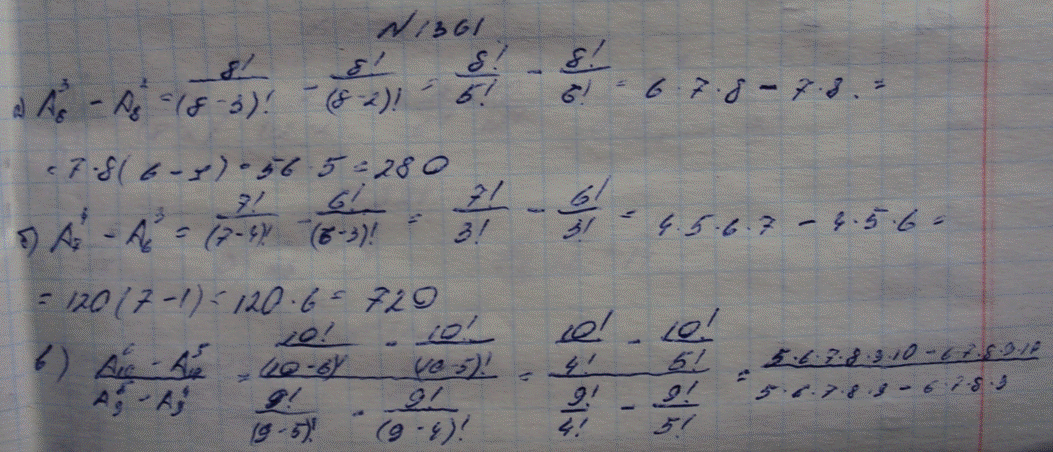 N1361
а) A₈³ - A₈² = 8!/(8-3)! - 8!/(8-2)! = 8!/5! - 8!/6! = 6·7·8 - 7·8. =
= 7·8(6-1) = 56·5 = 280
б) A₇⁴ - A₆³ = 7!/(7-4)! - 6!/(6-3)! = 7!/3! - 6!/3! = 4·5·6·7 - 4·5·6 =
= 120(7-1) = 120·6 = 720
в) (A₁₀⁶ - A₁₀⁵)/(A₉⁵ - A₉⁴) = (10!/(10-6)! - 10!/(10-5)!)/(9!/(9-5)! - 9!/(9-4)!) = (10!/4! - 10!/5!)/(9!/4! - 9!/5!) = (5·6·7·8·9·10 - 6·7·8·9·10)/(5·6·7·8·9 - 6·7·8·9)